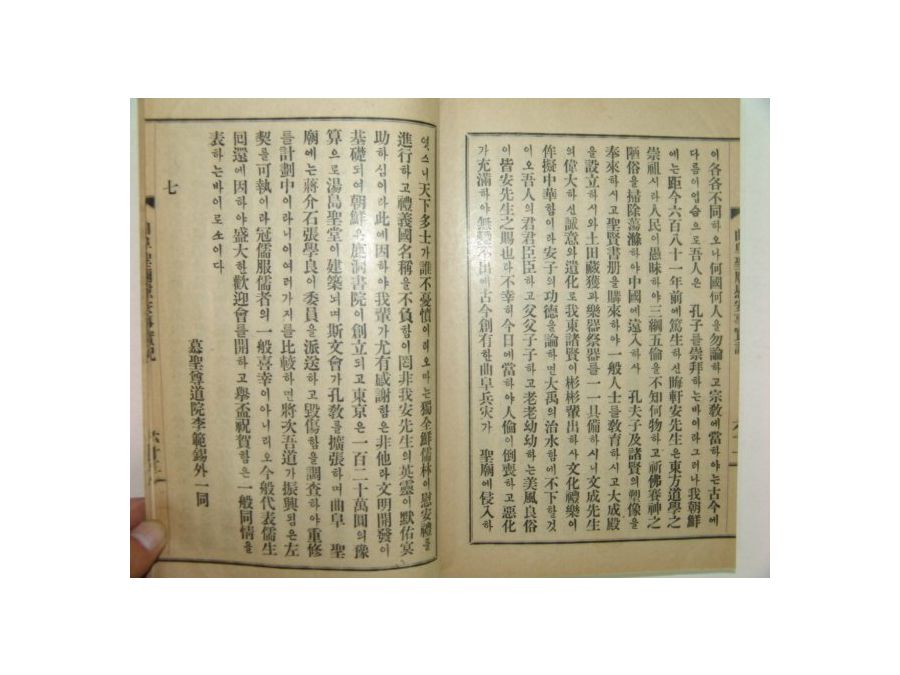 이各各不同하오나何國何人을勿論하고宗敎에當하야는古今에
다름이업슴으로吾人은 孔子를崇拜하는바이라그러나我朝鮮
에는距今六百八十一年前에篤生하신晦軒安先生은東方道學之
崇祖시라人民이愚昧하야三綱五倫을不知何物하고祈佛賽神之
陋俗을掃除蕩滌하야中國에遠入하사 孔夫子及諸賢의塑像을
奉來하시고聖賢書册을購來하야一般人士를敎育하시고大成殿
을設立하시와土田藏獲과樂器祭器를一一具備하시니文成先生
여偉大하신誠意와遺化로我東諸賢이彬彬輩出하사文化禮樂이
侔擬中華함이라安子의功德을論하면大禹의治水함에不下할것
이오吾人의君君臣臣하고父父子子하고老老幼幼하는美風良俗
이皆安先生之賜也라不幸히今日에當하야人倫이倒喪하고惡化
가充滿하야無變不出에古今創有한曲阜兵灾가 聖廟에侵入하
엿스니天下多士가誰不憂憤이리오마는獨全鮮儒林이慰安禮를
進行하고禮義國名稱을不負함이罔非我安先生의英靈이默佑冥
助하심이라此에因하야我輩가尤有感謝함은非他라文明開發이
基礎되여朝鮮은鹿洞書院이創立되고東京은一百二十萬圓의豫
算으로湯島聖堂이建築되며斯文會가孔敎를擴張하며曲阜 聖
廟에는蔣介石張學良이委員을派送하고毁傷함을調査하야重修
를計劃中이라니이여러가지를比較하면將次吾道가振興됨은左
契를可執이라冠儒服儒者의一般喜幸이아니리오今般代表儒生
回還에因하야盛大한歡迎會를開하고擧盃祝賀함은一般同情을
表하는바이로소이다
慕聖尊道院李範錫外一同
七